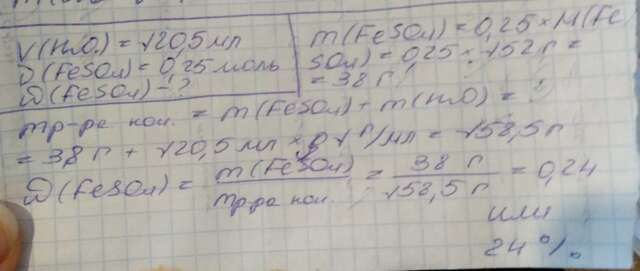 V(H₂O) = 120,5 мл
ν(FeSO₄) = 0,25 моль
ω(FeSO₄) - ?
m(FeSO₄) = 0,25 × M(Fe
SO₄) = 0,25 × 152 г =
= 38 г
mр-ра кон. = m(FeSO₄) + m(H₂O) =
= 38 г + 120,5 мл × 1 г/мл = 158,5 г
ω(FeSO₄) = m(FeSO₄) / mр-ра кон. = 38 г / 158,5 г = 0,24
или
24%.